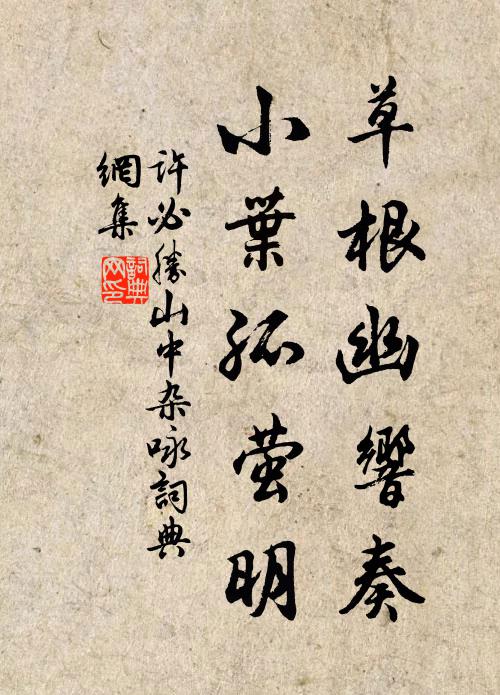 草根幽響奏
小葉孤萤明
許必勝山中杂咏詞典
網集
詞典
网印